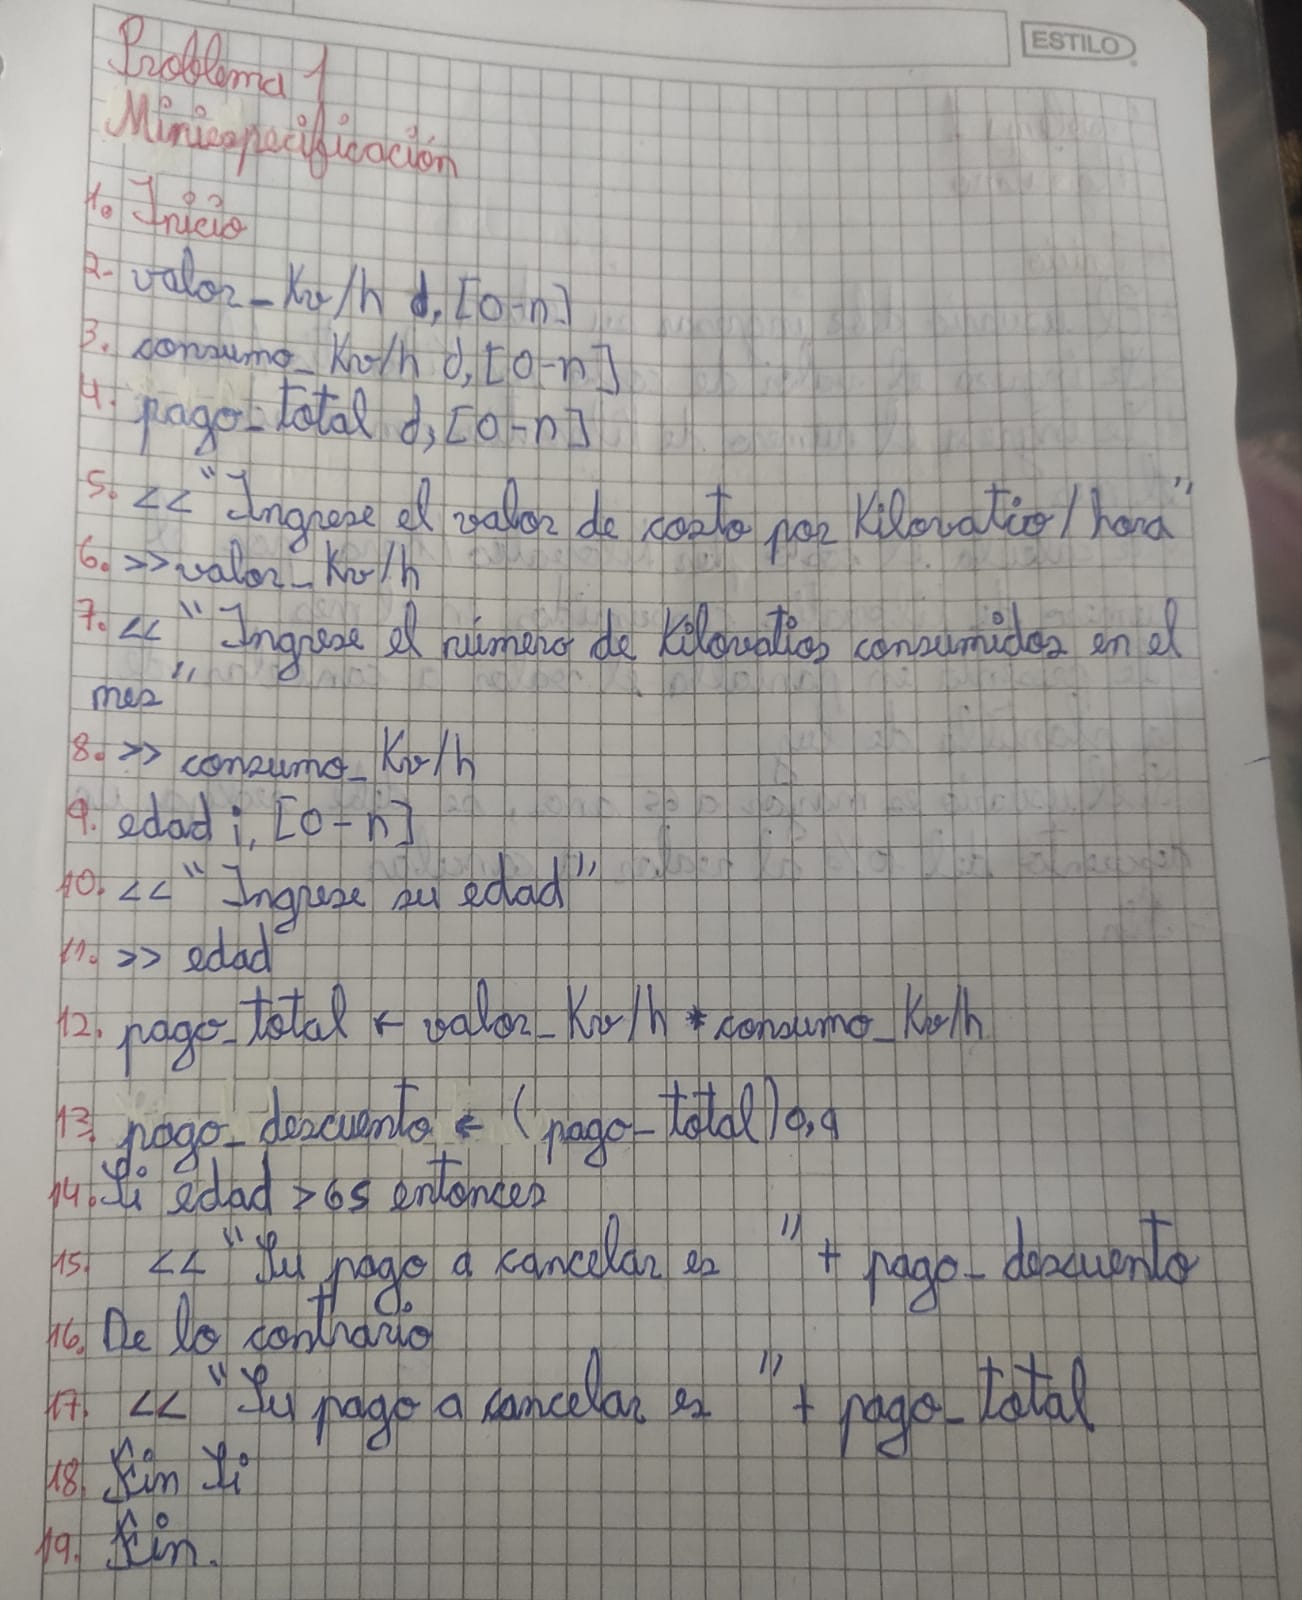 ESTILO
Problema 1
Miniespecificación
1. Inicio
2- valor_Kv/h d, [0-n]
3. consumo_Kv/h d, [0-n]
4. pago_total d, [0-n]
5. <<"Ingrese el valor de costo por Kilovatio/hora"
6. >>valor_Kv/h
7. <<"Ingrese el número de Kilovatios consumidos en el
mes"
8. >> consumo_Kv/h
9. edad i, [0-n]
10. <<"Ingrese su edad"
11. >> edad
12. pago_total ← valor_Kv/h * consumo_Kv/h
13. pago_descuento ← (pago_total)0,9
14. Si edad >65 entonces
15. <<"Su pago a cancelar es " + pago_descuento
16. De lo contrario
17. <<"Su pago a cancelar es " + pago_total
18. Fin Si
19. Fin.